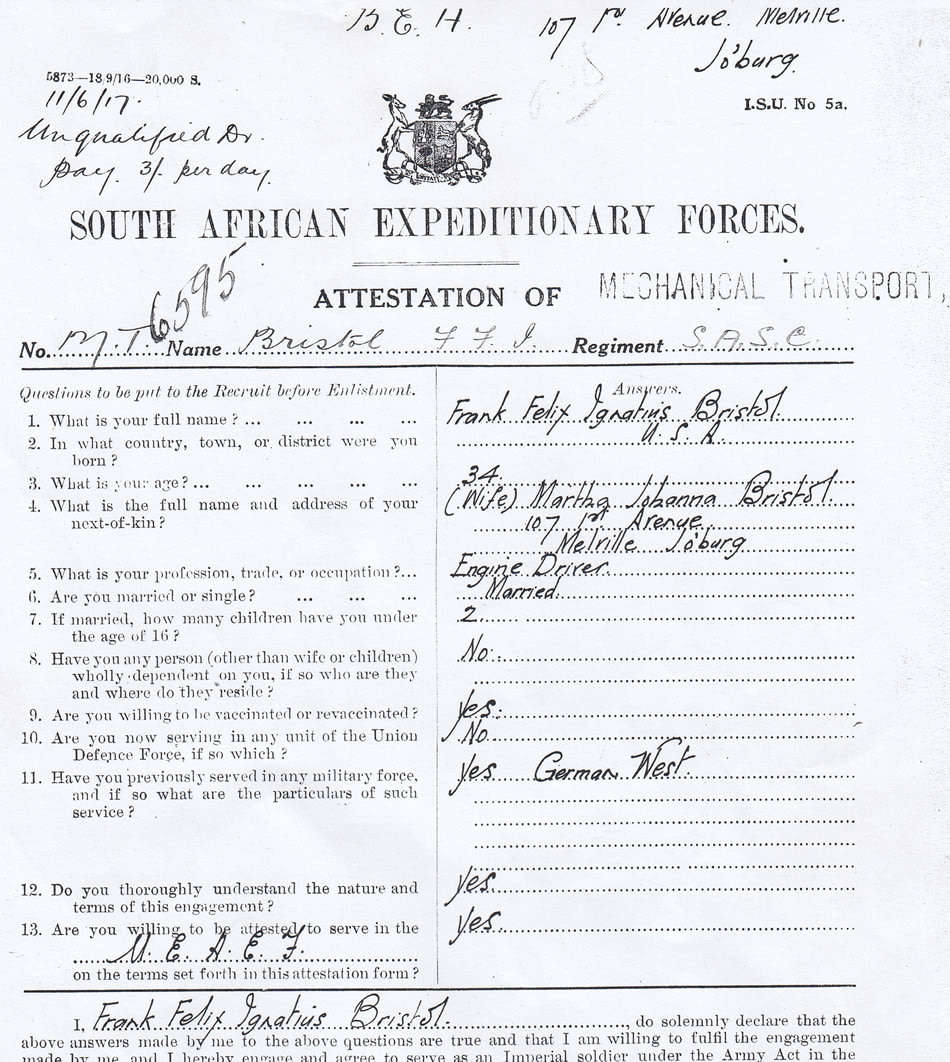 B. E. H. 107 1st Avenue. Melville.
Jo'burg.
5873—18/9/16—20,000 S.
11/6/17.
I.S.U. No 5a.
Unqualified Dr.
Pay. 3/. per day.
SOUTH AFRICAN EXPEDITIONARY FORCES.
ATTESTATION OF MECHANICAL TRANSPORT,
No. M.T. 6595 Name Bristol F. F. I. Regiment S.A.S.C.
Questions to be put to the Recruit before Enlistment. Answers.
1. What is your full name? ... ... ... ... Frank Felix Ignatius Bristol
2. In what country, town, or district were you U. S. A.
born?
3. What is your age? ... ... ... ... ... 34.
4. What is the full name and address of your (Wife) Martha Johanna Bristol.
next-of-kin? 107 1st Avenue
Melville Jo'burg
5. What is your profession, trade, or occupation?... Engine Driver.
6. Are you married or single? ... ... ... Married.
7. If married, how many children have you under 2
the age of 16?
8. Have you any person (other than wife or children) No.
wholly dependent on you, if so who are they
and where do they reside?
9. Are you willing to be vaccinated or revaccinated? yes.
10. Are you now serving in any unit of the Union No
Defence Force, if so which?
11. Have you previously served in any military force, yes German West.
and if so what are the particulars of such
service?
12. Do you thoroughly understand the nature and yes.
terms of this engagement?
13. Are you willing to be attested to serve in the yes.
M. E. A. E. F.
on the terms set forth in this attestation form?
I, Frank Felix Ignatius Bristol., do solemnly declare that the
above answers made by me to the above questions are true and that I am willing to fulfil the engagement
made by me, and I hereby engage and agree to serve as an Imperial soldier under the Army Act in the